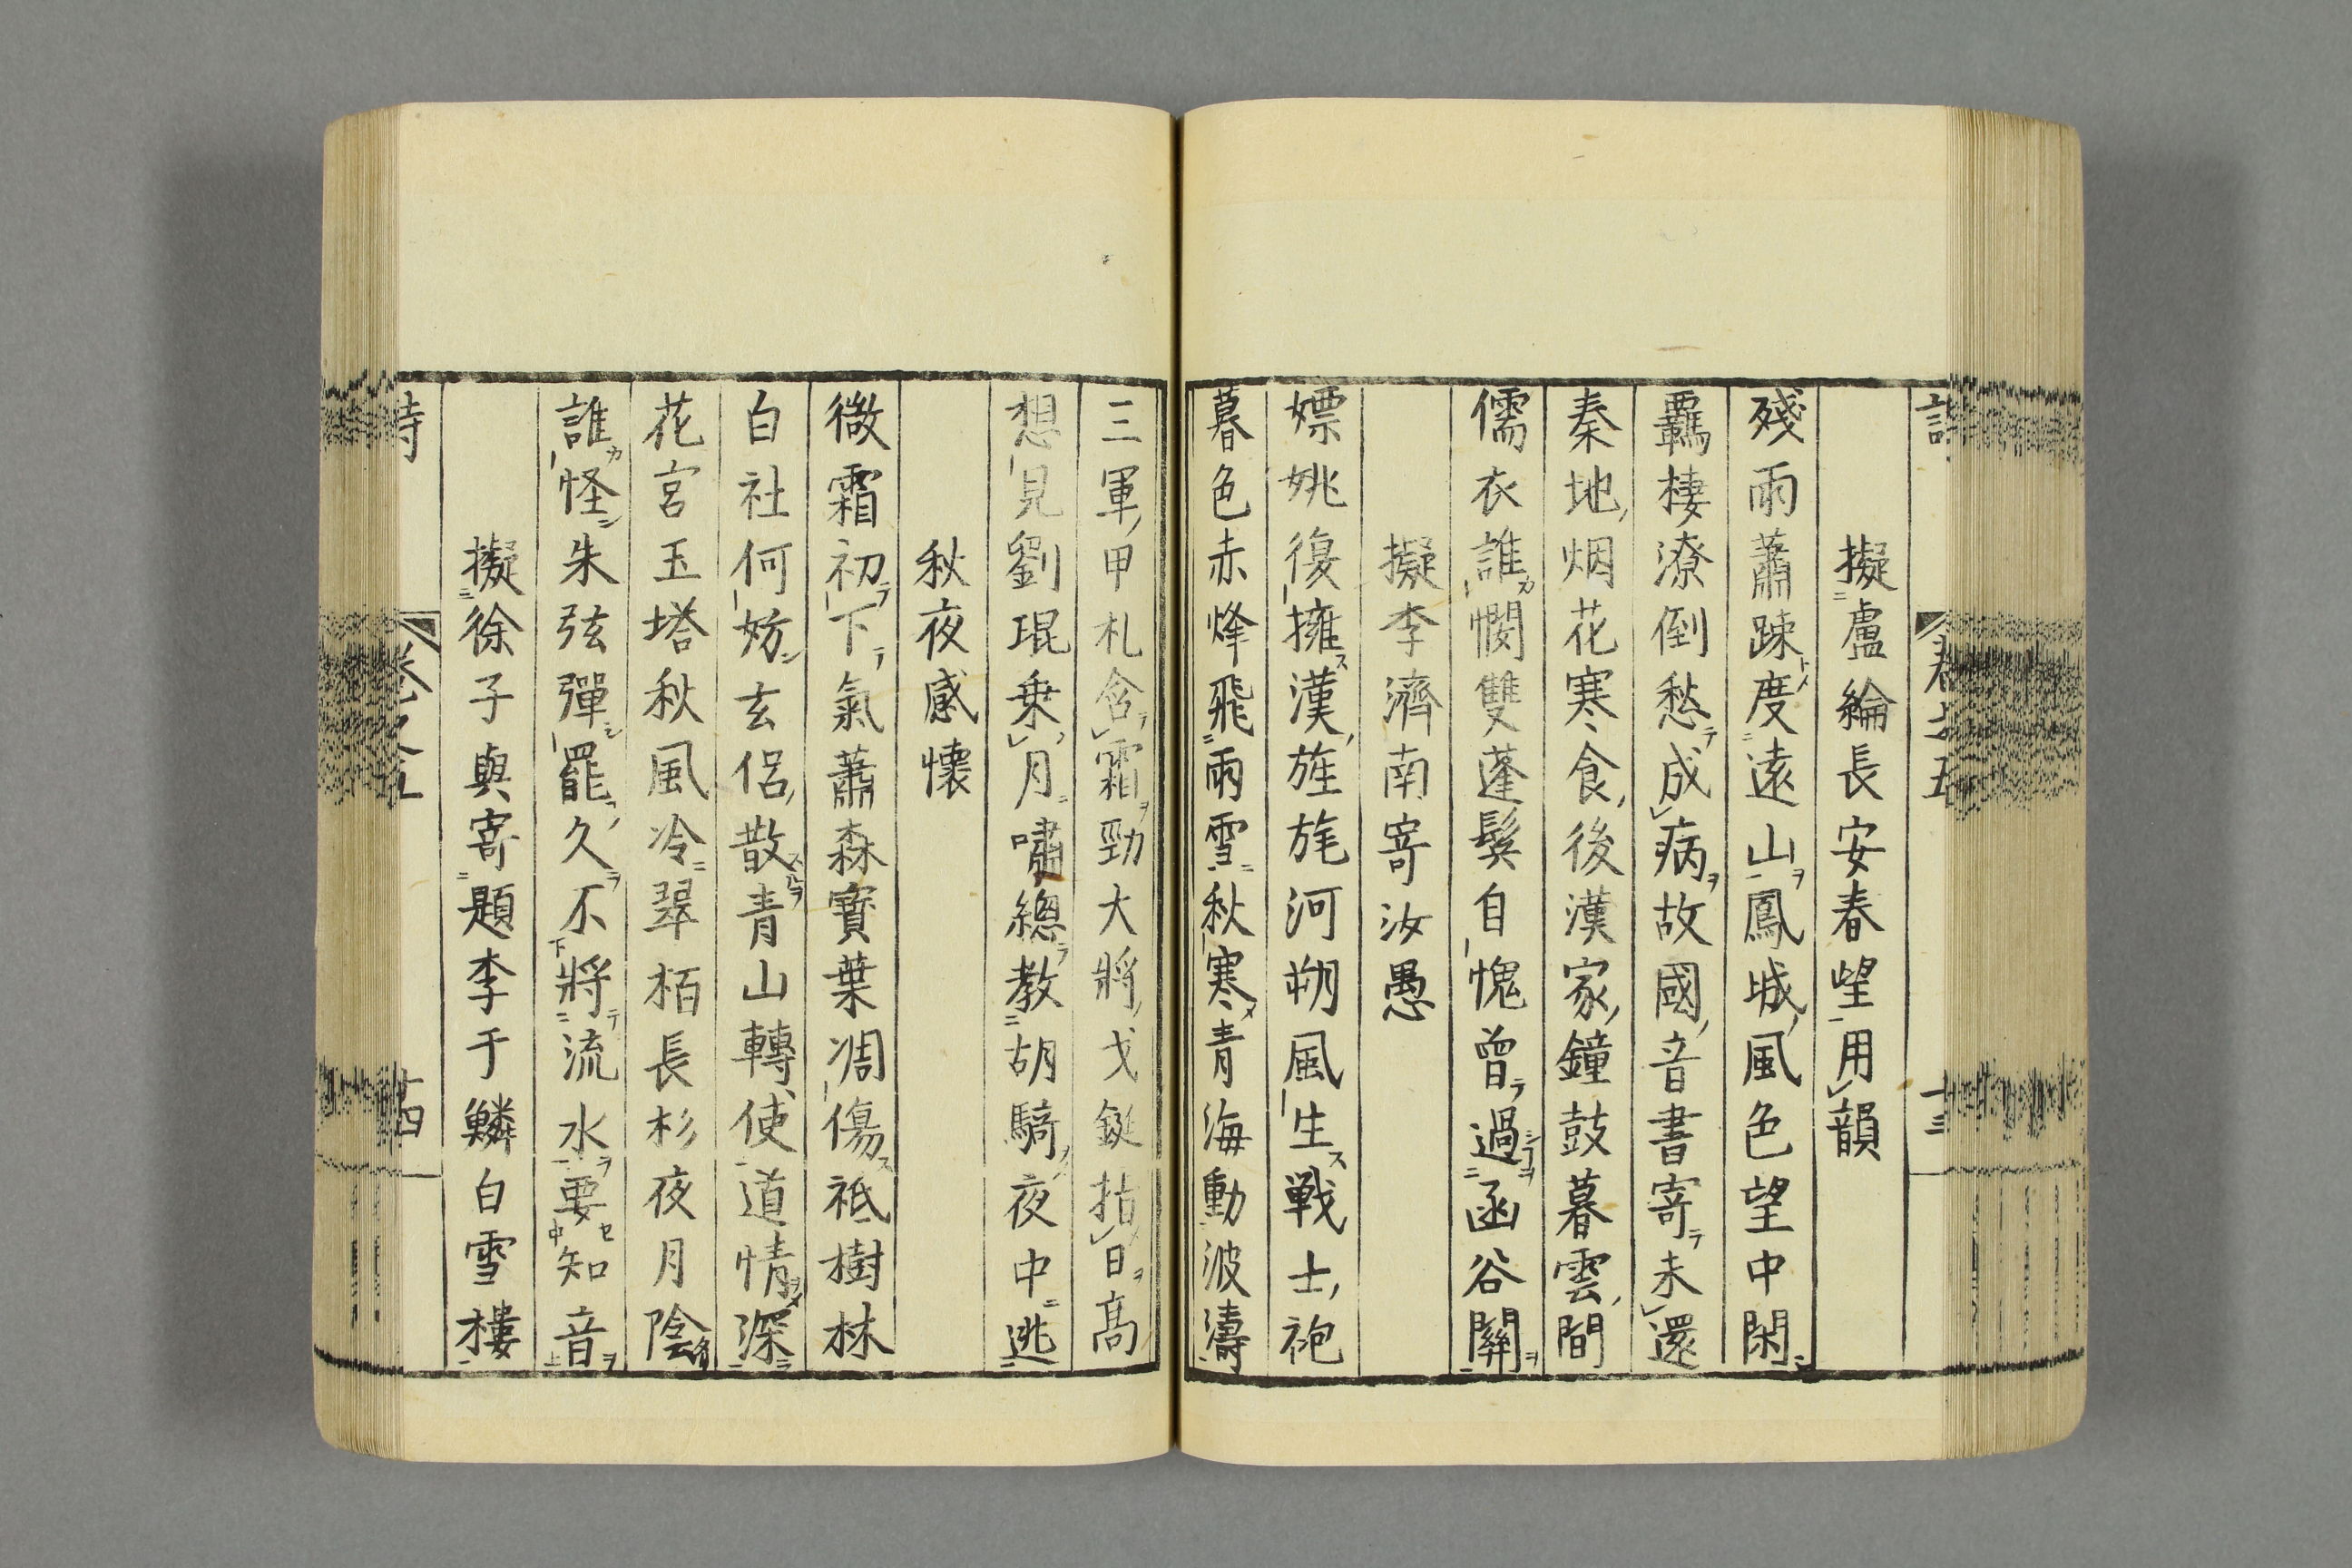 擬盧綸長安春望用韻
殘雨蕭踈度遠山鳳城風色望中閑
羈棲潦倒愁成病故國音書寄未還
秦地烟花寒食後漢家鐘鼓暮雲間
儒衣誰憫雙蓬髮自愧曾過函谷關
擬李濟南寄汝愚
嫖姚復擁漢旌旄河朔風生戦士袍
暮色赤烽飛雨雪秋寒青海動波濤
三軍甲札含霜勁大將戈鋋指日高
想見劉琨乗月嘯總教胡騎夜中逃
秋夜感懐
微霜初下氣蕭森寳葉凋傷祗樹林
白社何妨玄侶散青山轉使道情深
花宮玉塔秋風冷翠栢長杉夜月陰
誰怪朱弦彈罷久不將流水要知音
擬徐子與寄題李于鱗白雪樓
卷之五
十四